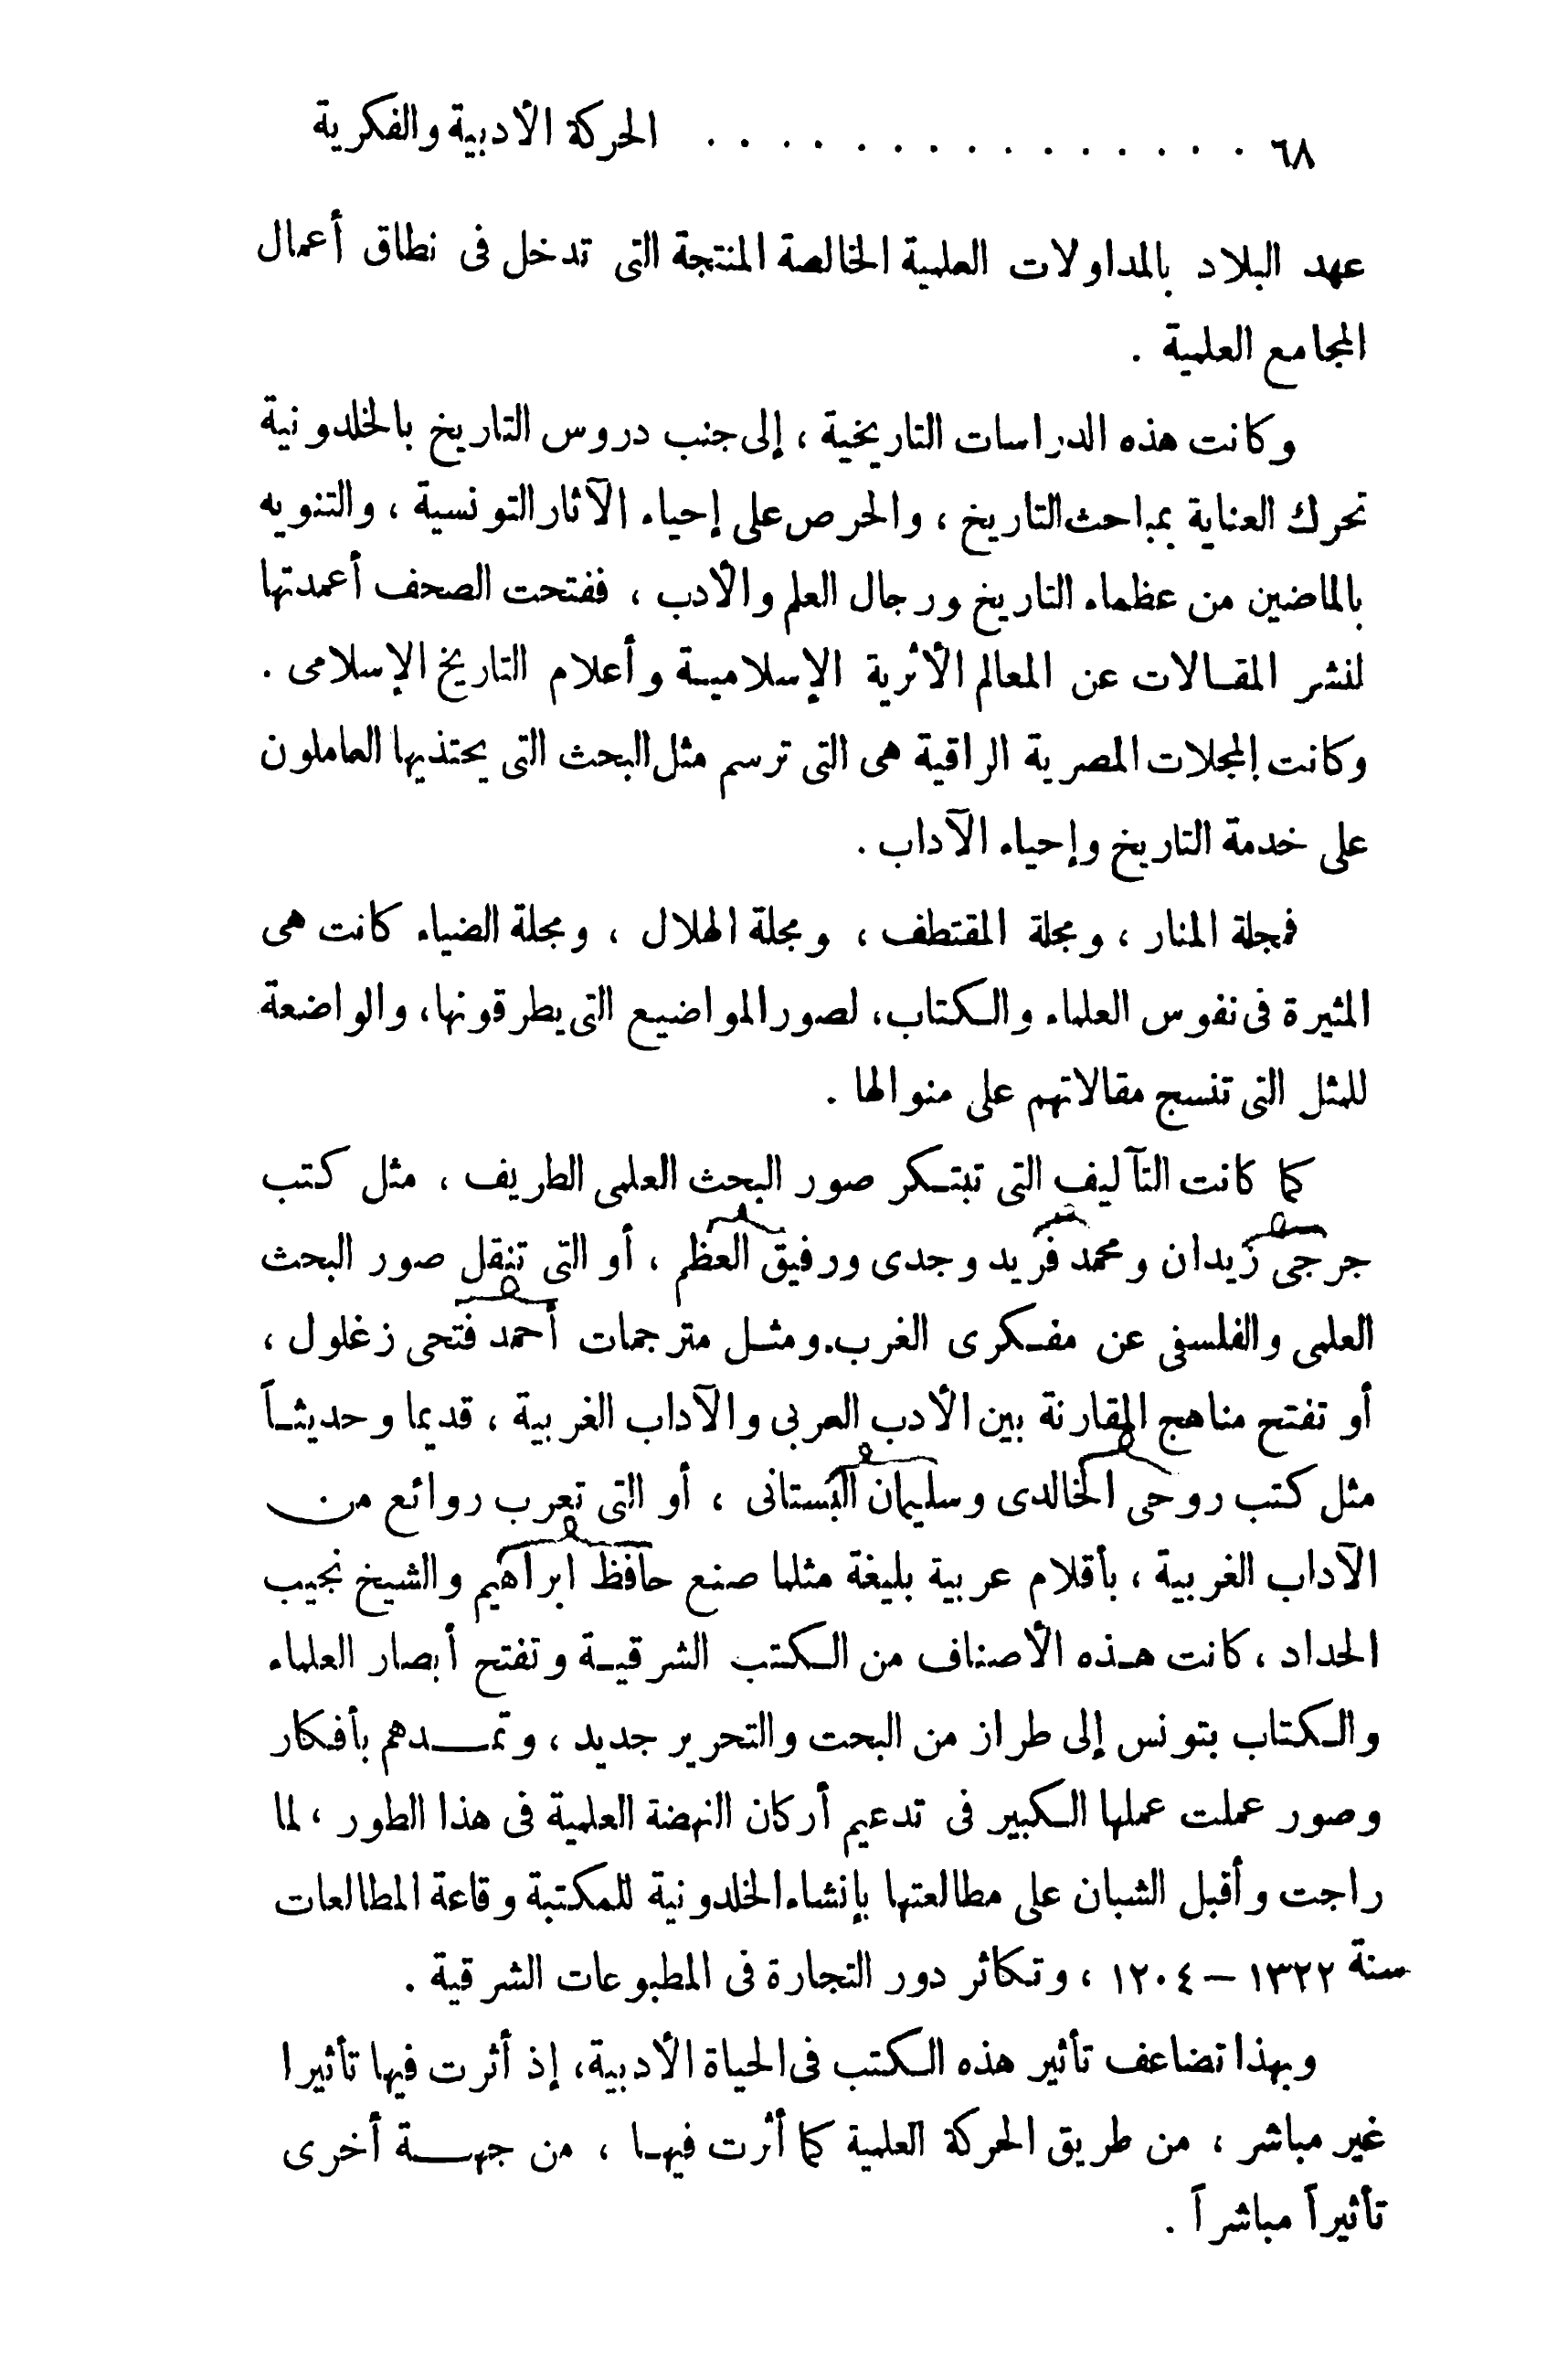 ٦٨ . . . . . . . . . . . . . . . الحركة الأدبية والفكرية
عهد البلاد بالمداولات العلمية الخالصة المنتجة التى تدخل فى نطاق أعمال
المجامع العلمية .
وكانت هذه الدراسات التاريخية ، إلى جنب دروس التاريخ بالخلدونية
تحرك العناية بمباحث التاريخ ، والحرص على إحياء الآثار التونسية ، والتنويه
بالماضين من عظماء التاريخ ورجال العلم والأدب ، ففتحت الصحف أعمدتها
لنشر المقالات عن المعالم الأثرية الإسلامية وأعلام التاريخ الإسلامى .
وكانت المجلات المصرية الراقية هى التى ترسم مثل البحث التى يحتذيها العاملون
على خدمة التاريخ وإحياء الآداب .
فمجلة المنار ، ومجلة المقتطف ، ومجلة الهلال ، ومجلة الضياء كانت هى
المثيرة فى نفوس العلماء والكتاب، لصور المواضيع التى يطرقونها، والواضعة
للمثل التى تنسج مقالاتهم على منوالها .
كما كانت التآليف التى تبتكر صور البحث العلمى الطريف ، مثل كتب
جرجى زيدان ومحمد فريد وجدى ورفيق العظم ، أو التى تنقل صور البحث
العلمى والفلسفى عن مفكرى الغرب.ومثل مترجمات أحمد فتحى زغلول ،
أو تفتح مناهج المقارنة بين الأدب العربى والآداب الغربية ، قديما وحديثاً
مثل كتب روحى الخالدى وسليمان البستانى ، أو التى تعرب روائع من
الآداب الغربية ، بأقلام عربية بليغة مثلما صنع حافظ ابراهيم والشيخ نجيب
الحداد ، كانت هذه الأصناف من الكتب الشرقية وتفتح أبصار العلماء
والكتاب بتونس إلى طراز من البحث والتحرير جديد ، وتمدهم بأفكار
وصور عملت عملها الكبير فى تدعيم أركان النهضة العلمية فى هذا الطور ، لما
راجت وأقبل الشبان على مطالعتها بإنشاء الخلدونية للمكتبة وقاعة المطالعات
سنة ١٣٢٢ – ١٢٠٤ ، وتكاثر دور التجارة فى المطبوعات الشرقية .
وبهذا تضاعف تأثير هذه الكتب فى الحياة الأدبية، إذ أثرت فيها تأثيرا
غير مباشر ، من طريق الحركة العلمية كما أثرت فيها ، من جهة أخرى
تأثيراً مباشراً .